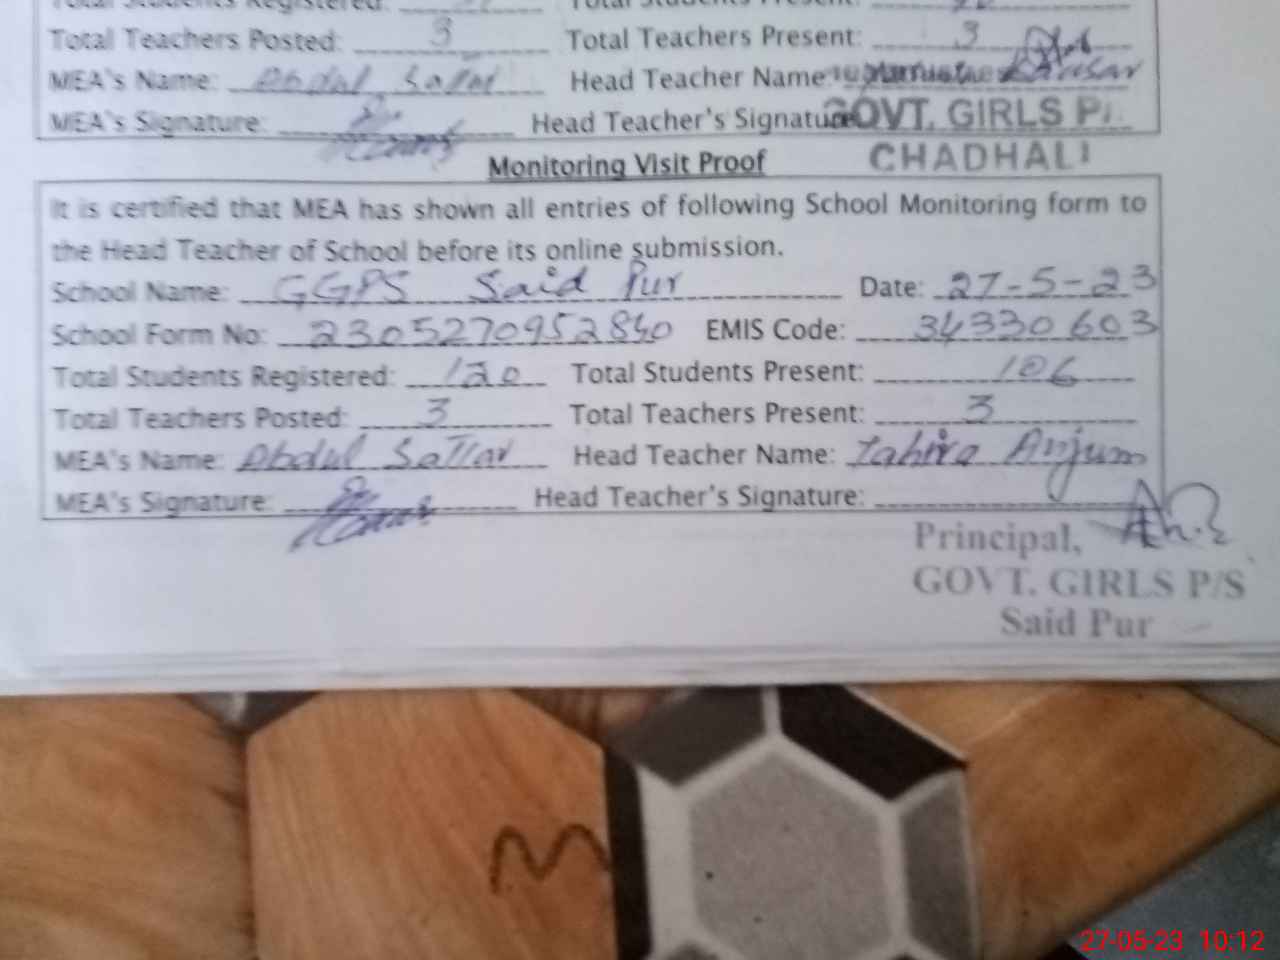 Total Students Registered: Total Students Present:
Total Teachers Posted: 3 Total Teachers Present: 3
MEA's Name: Abdul Sattar Head Teacher Name Kausar
MEA's Signature: Head Teacher's Signature
GOVT. GIRLS P/
CHADHALI
Monitoring Visit Proof
It is certified that MEA has shown all entries of following School Monitoring form to
the Head Teacher of School before its online submission.
School Name: GGPS Said Pur Date: 27-5-23
School Form No: 2305270952840 EMIS Code: 34330603
Total Students Registered: 120 Total Students Present: 106
Total Teachers Posted: 3 Total Teachers Present: 3
MEA's Name: Abdul Sattar Head Teacher Name: Tahira Anjum
MEA's Signature: Head Teacher's Signature:
Principal,
GOVT. GIRLS P/S
Said Pur
27-05-23 10:12